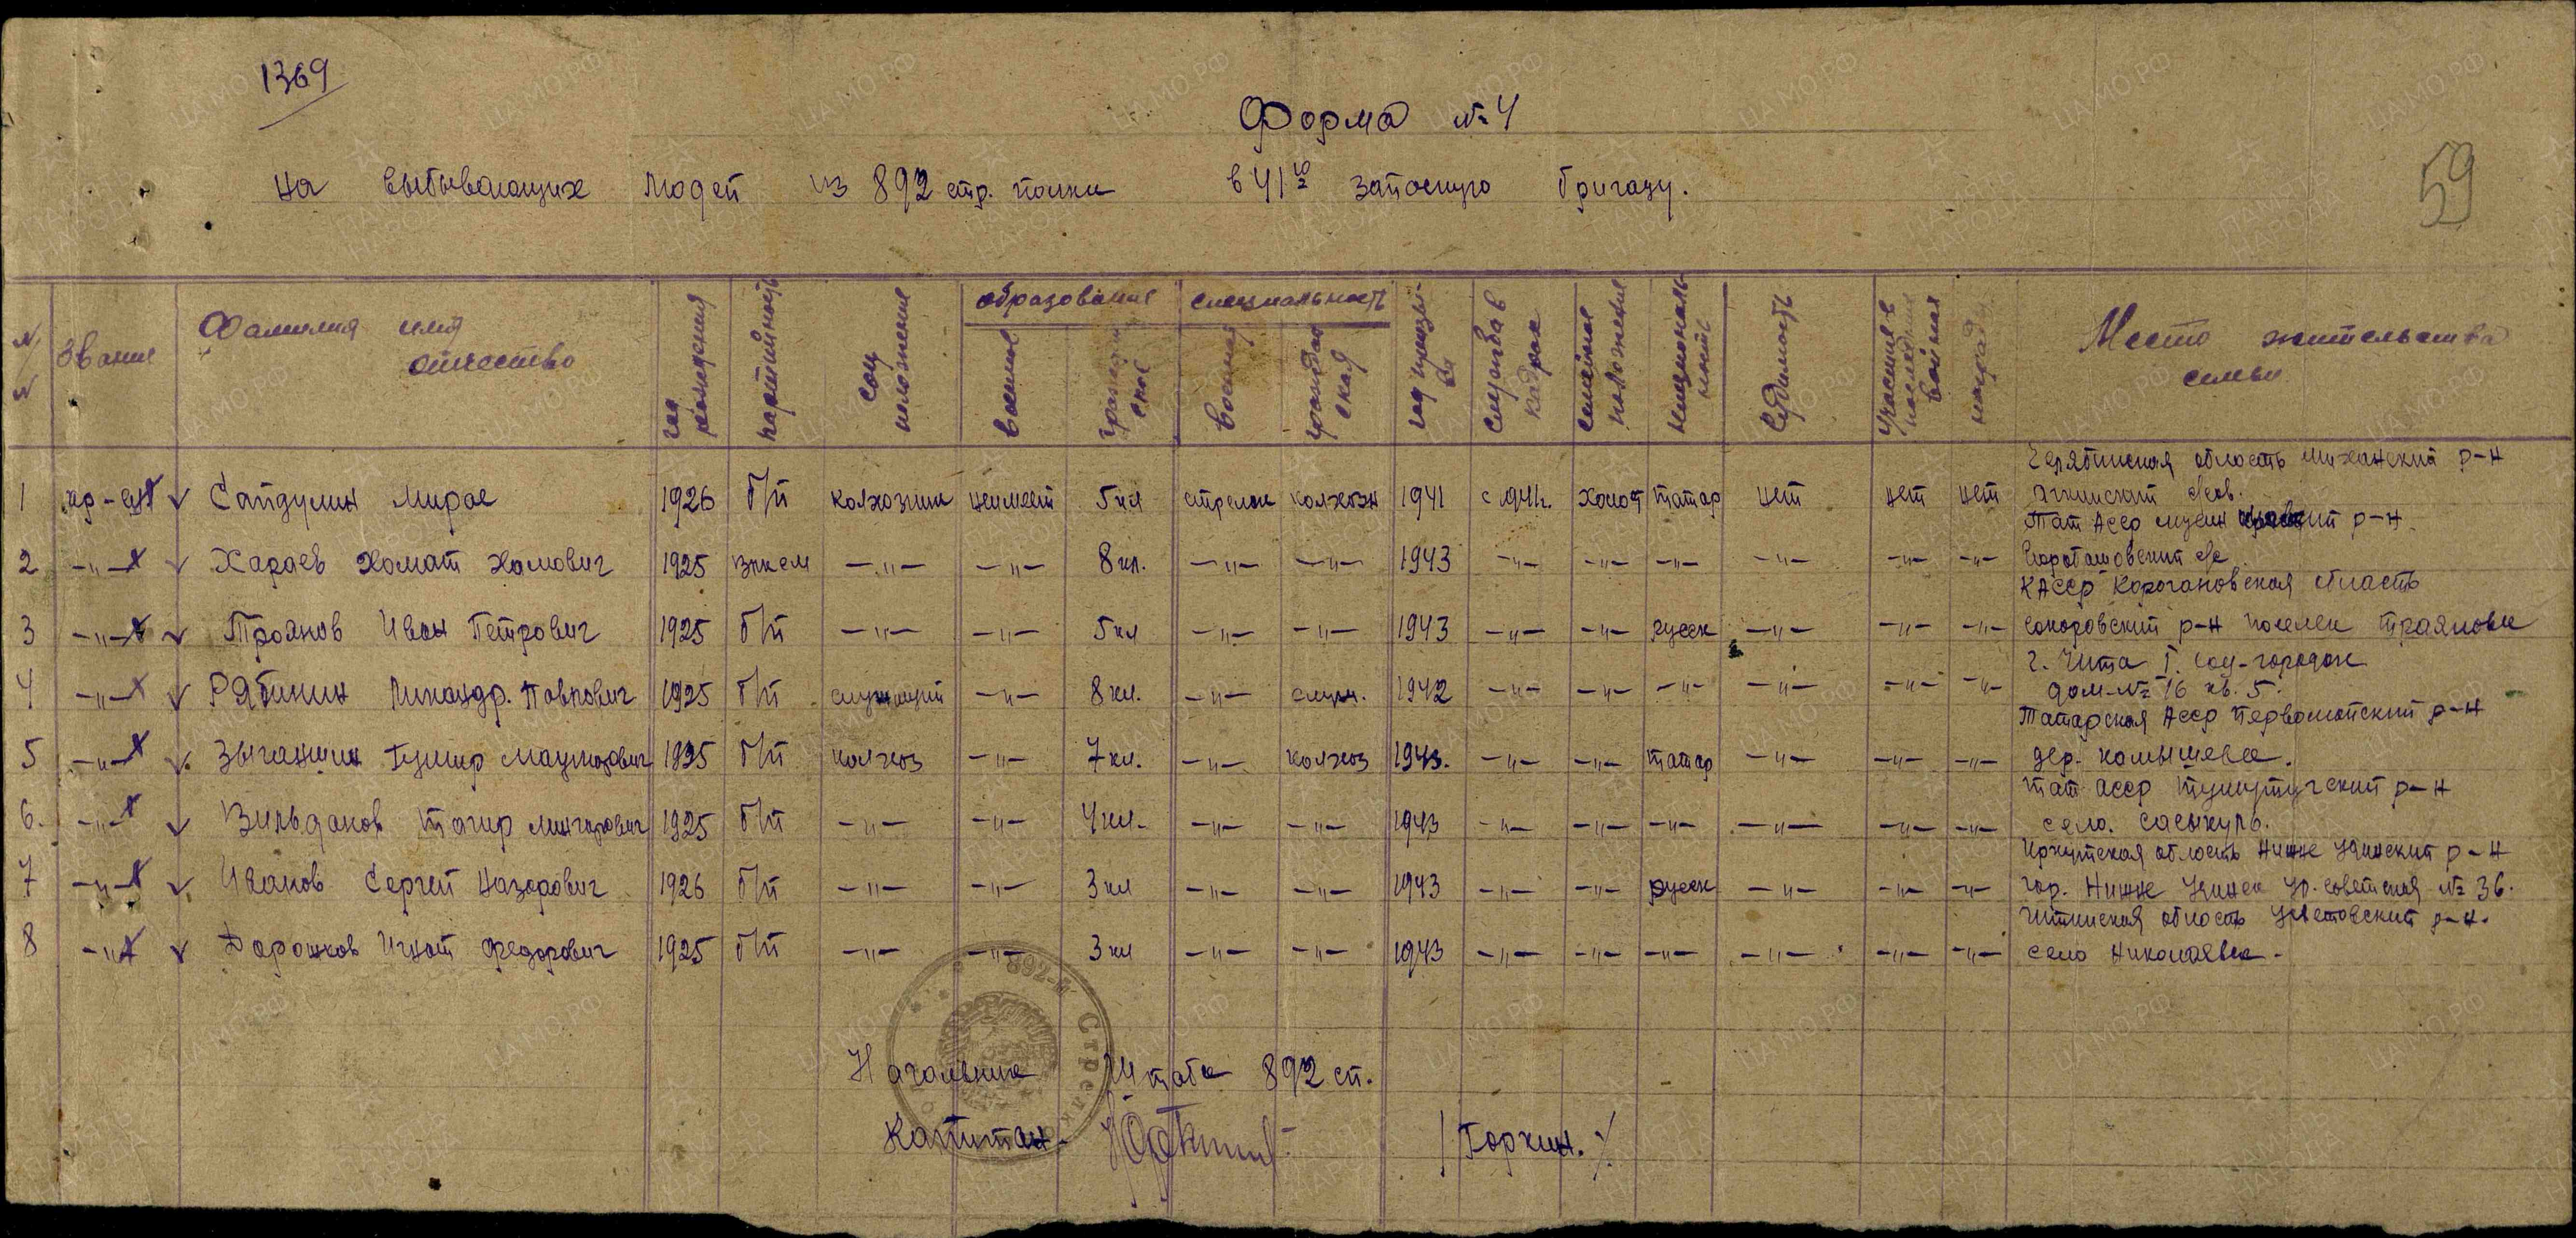 1369
Форма № 4
59
на выбывающих людей из 892 стр. полка в 41ю запасную бригаду.
№ № Звание Фамилия имя отчество год рождения партийность соц положение образование военное гражданское специальность военная гражданская год призыва служба в кадрах семейное положение национальность судимость участие в последних войнах награды Место жительства семьи
Челябинская область р-н
1 кр-ец Сайдулин Мирас 1926 б/п колхозник неимеет 5 кл стрелок колхозн 1941 с 1941г. холост татар нет нет нет с/сов.
Тат Асср р-н
2 -"- Хараев Хомат Хамович 1925 влксм -"- -"- 8 кл. -"- -"- 1943 -"- -"- -"- -"- -"- -"- с/с
КАССР Карогановская область
3 -"- Троянов Иван Петрович 1925 б/п -"- -"- 5 кл -"- -"- 1943 -"- -"- русск -"- -"- -"- р-н поселек Траяновка
г. Чита I. соц-городок
4 -"- Рябинин Никандр. Павлович 1925 б/п служащий -"- 8 кл. -"- служ. 1942 -"- -"- -"- -"- -"- -"- дом-№ 16 кв. 5.
Татарская Асср Первомайский р-н
5 -"- Зиганшин 1925 б/п колхоз -"- 7 кл. -"- колхоз 1943. -"- -"- татар -"- -"- -"- дер. камышевка.
тат асср р-н
6. -"- Вильданов Тагир 1925 б/п -"- -"- 4 кл. -"- -"- 1943 -"- -"- -"- -"- -"- -"- село. сасыкуль.
Иркутская область Нижне Удинский р-н
7 -"- Иванов Сергей Назарович 1926 б/п -"- -"- 3 кл -"- -"- 1943 -"- -"- русск -"- -"- -"- гор. Нижне Удинск ул. советская № 36.
Читинская область Улетовский р-н.
8 -"- Дорожков Игнат Федорович 1925 б/п -"- -"- 3 кл -"- -"- 1943 -"- -"- -"- -"- -"- -"- село Николаевка -
892-й Стрелк
Начальник Штаба 892 сп.
Капитан- /Горкин./